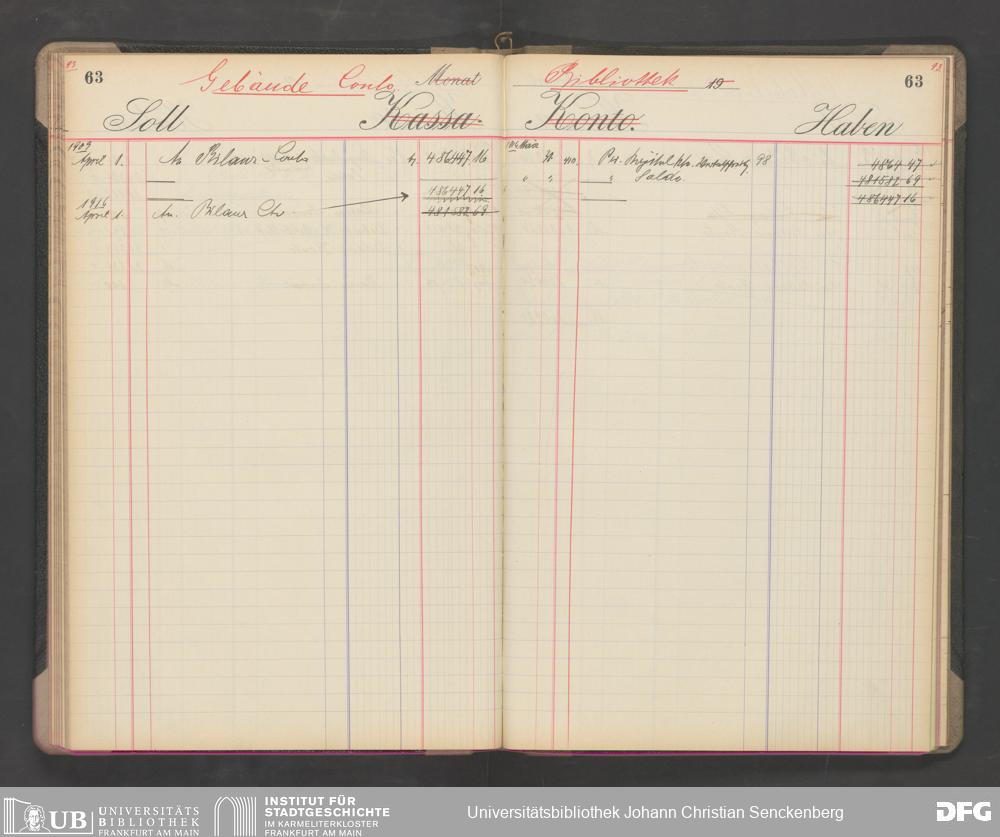 93
63
Gebäude Conto
Monat
Soll
Kassa
1909
April 1. An Bilanz-Conto 486447.16
486447.16
1916
April 1. An. Bilanz Cto 481582 69
93
63
Bibliothek
19
Konto.
Haben
März 98 4864 47
" " Saldo. 481582 69
486447 16
UB UNIVERSITÄTS
BIBLIOTHEK
FRANKFURT AM MAIN
INSTITUT FÜR
STADTGESCHICHTE
IM KARMELITERKLOSTER
FRANKFURT AM MAIN
Universitätsbibliothek Johann Christian Senckenberg
DFG